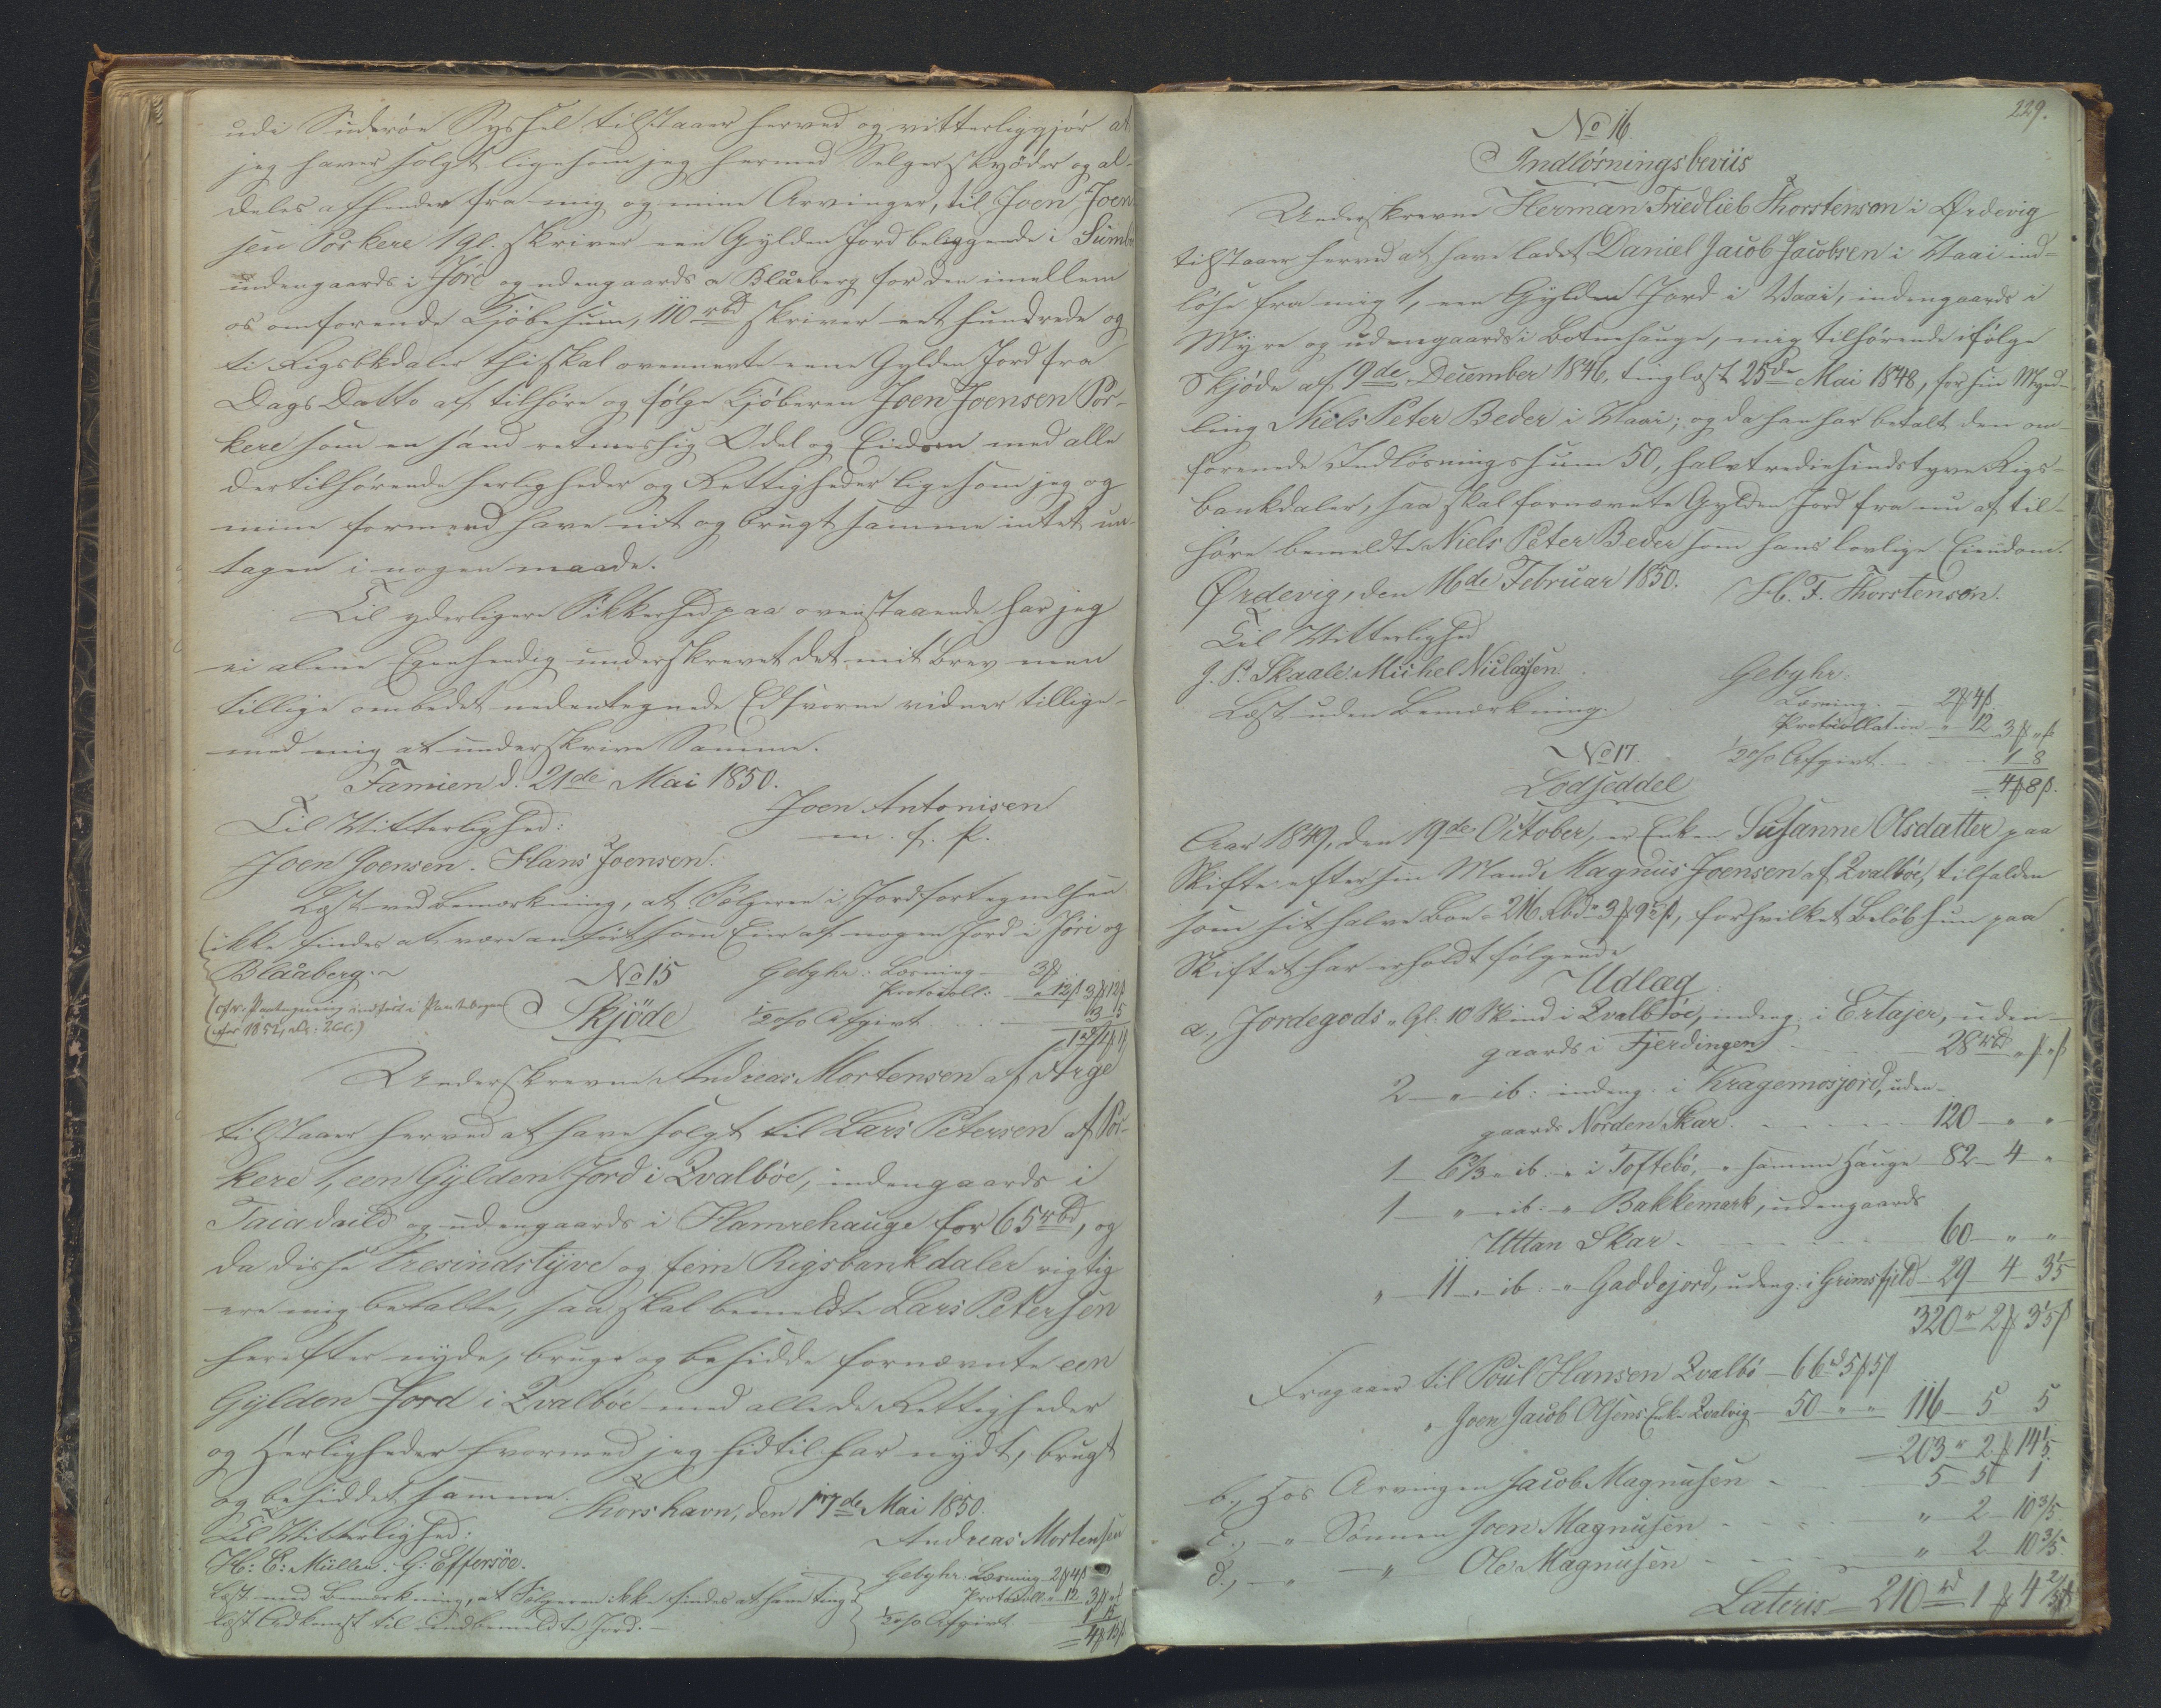 udi Suderöe Syssel tilstaaer herved og vitterliggjör at
jeg haver solgt ligesom jeg hermed Selger skjöder og al-
deles afhender fra mig og mine Arvinger, til Joen Joen-
sen Porkere 1 Gl. skriver een Gylden Jord beliggende i Sumbö
indengaards i Jöri og udengaards a Blåeberg for den imellem
os omforende Kjöbesum, 110 rbd skriver eet hundrede og
ti Rigsbkdaler thi skal ovennevte eene Gylden Jord fra
Dags Datto af tilhöre og fölge Kjöberen Joen Joensen Por-
kere som en sand retmessig Odel og Eiedom med alle
dertilhörende herligheder og Rettigheder ligesom jeg og
mine formend have nit og brugt samme intet un-
tagen i nogen maade.
Til yderligere Sikkerhed paa ovenstaaende har jeg
ei alene Egenhendig underskrevet det mit brev men
tillige ombedet nedentegnede Edsvorne vidner tillige-
med mig at underskrive Samme.
Famien d. 21de Mai 1850.
Joen Antonisen
Til Vitterlighed:
m. f. P.
Joen Joensen. Hans Joensen.
Læst med Bemærkning, at Sælgeren i Jordfortegnelsen
ikke findes at være anfört som Eier af nogen Jord i Jöri og
Blåaberg.
No 15
Gebyhr: Læsning 3ß
Protocoll: " 12ß 3ß 12ß
(cfr. Paategning indfört i Pantebogen
for 1852,
Skjöde
½ o/o Afgivt 3 5
Underskrevne Andreas Mortensen af Arge
tilstaaer herved at have solgt til Lars Petersen af Por-
kere 1, een Gylden Jord i Qvalböe, indengaards i
Taiadaild og udengaards i Hamrehauge for 65 rbd, og
da disse tresindstyve og fem Rigsbankdaler rigtig
ere mig betalte, saa skal bemeldte Lars Petersen
herefter nyde, bruge og besidde fornævnte een
Gylden Jord i Qvalböe med alle de Rettigheder
og Herligheder hvormed jeg hidtil har nydt, brugt
og besiddet samme.
Thorshavn, den 17de Mai 1850.
Til Vitterlighed:
Andreas Mortensen
H: C: Müller. G: Effersöe.
Gebyhr: Læsning 2ß 4ß
Læst med Bemærkning, at Sælgeren ikke findes at have ting-
Protocoll " 12 3ß "ß
læst Adkomst til indbemeldte Jord.
½ o/o Afgivt 1 15
4ß 15ß
229.
No 16.
Indlösningsbeviis
Underskrevne Herman Friedlieb Thorstenson i Ördevig
tilstaaer herved at have ladet Daniel Jacob Jacobsen i Waai ind-
löse fra mig 1, een Gylden Jord i Waai, indengaards i
Myre og udengaards i Botnehauge, mig tilhörende ifölge
Skjöde af 9de December 1846, tinglæst 25de Mai 1848, for sin Mynd-
ling Niels Peter Beder i Waai; og da han har betalt den om-
forenede Indlösningssum 50, halvtrediesindstyve Rigs-
bankdaler, saa skal fornævnte Gylden Jord fra nu af til-
höre bemeldte Niels Peter Beder som hans lovlige Eiendom.
Ördevig, den 16de Februar 1850.
H. F. Thorstenson.
Til Vitterlighed
J. P. Skaale. Michel Niclasen.
Gebyhr:
Læst uden Bemærkning.
Læsning. 2ß 4ß
Protocollation " 12 3ß "ß
No 17.
½ o/o Afgivt 1 8
Lodseddel
4ß 8ß.
Aar 1849, den 19de October, er Enken Susanne Olsdatter paa
Skifte efter sin Mand Magnus Joensen af Qvalböe, tilfalden
som sit halve Boe 216 Rbd 3ß 9½ß, for hvilket Belöb hun paa
Skiftet har erholdt fölgende
Udlæg
a., Jordegods " Gl. 10 Skind i Qvalböe, indeng. i Ertajer, uden-
gaards i Fjerdingen 28 rbd "ß "ß
2 " ib: indeng. i Kragemosjord, uden-
gaards Norden Skar. 120 " "
1 6⅔ " ib: " i Toftebö, " samme Hauge 82 4 "
1 " " ib: " Bakkemark, udengaards
Uttan Skar 60 " "
" 11 " ib: " Gaddejord, udeng: i Grimsfjeld 29 4 3⅕
320 r 2ß 3⅕ß
Fragaaer til Poul Hansen Qvalbö 66 d 5ß 5ß
" Joen Jacob Olsens Enke Qvalvig 50 " " 116 5 5
203 r 2ß 14⅕
b., Hos Arvingen Jacob Magnusen 5 5 1
c., " Sönnen Joen Magnusen " 2 10⅗
d., " " Ole Magnusen " 2 10⅗
Lateris 210 rd 1ß 4⅖ß